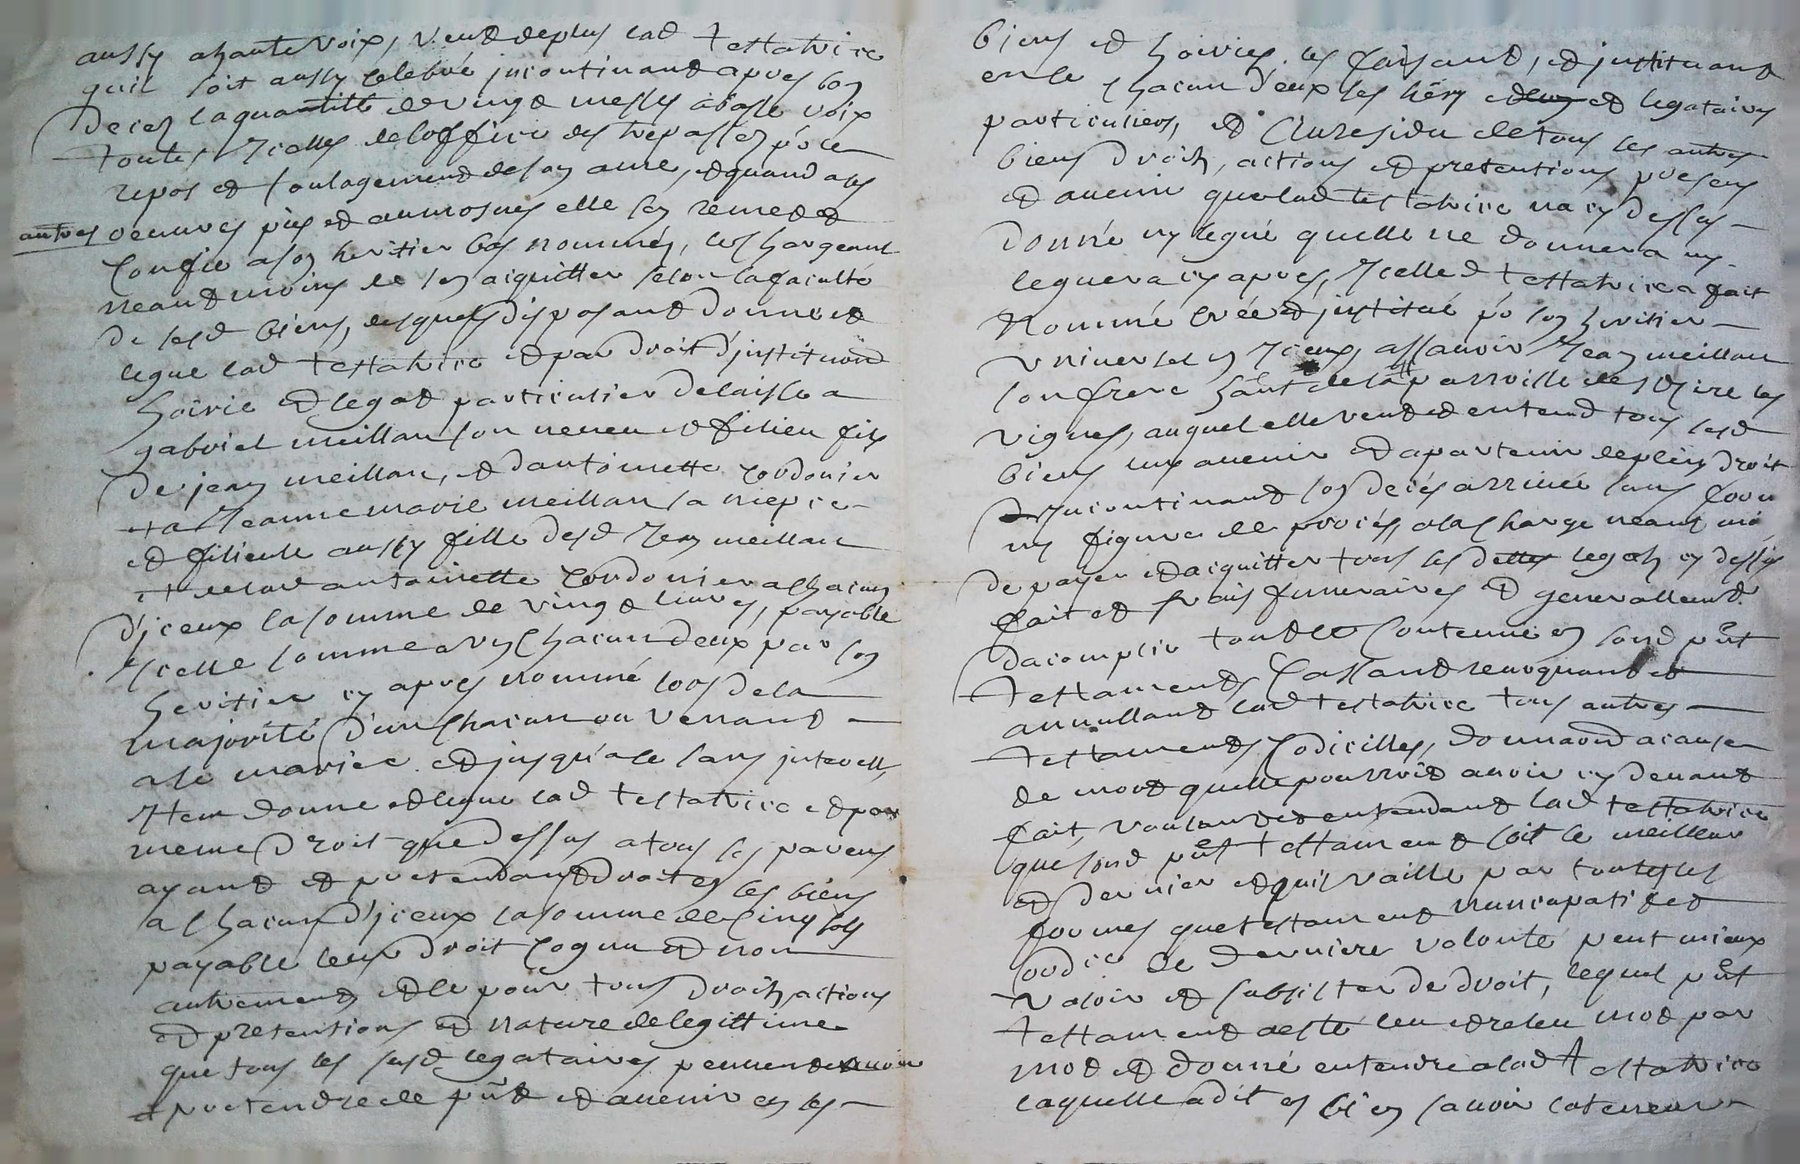 aussy a haute voix, veut de plus lad testatrice
quil soit aussy celebré incontinand apres son
deces la quantité de vingt messes a basse voix
toutes icelles de loffice des trepassez po.r le
repos et soulagement de son ame, et quand a ses
autres oeuvres pies et aumosnes elle sen remet et
confie a son heritier bas nommé, le chargeant
neantmoins de sen aiquitter selon la faculté
de sesd biens, desquels disposant donne et
legue lad testatrice et par droit d'institution
hoirie et legat particulier delaisse a
gabriel meillan son neveu et filieu fils
de jean meillan, et dantoinette cordonier
et a Jeanne marie meillan sa niepce
et filieule aussy fille dud Jean meillan
et de lad antoinette cordonier a chacun
d'iceux la somme de vingt livres, payable
icelle somme a un chacun deux par son
heritier cy apres nommé lors de la
majorité d'un chacun ou venant
a se marier et jusqu'a ce sans interest,
Item donne et legue lad testatrice et par
meme droit que dessus a tous ses parens
ayant et pretendant droit en ses biens
a chacun d'iceux la somme de cinq sols
payable leur droit cognu et non
autrement et ce pour tous droits actions
et pretentions et nature de legittime
que tous les susd legataires peuvent avoir
et pretendre de pnt et avenir en ses
biens et hoiries les faisant, et instituant
en ce chacun d'eux ses hers et legataires
particuliers, et au residu de tous ses autres
biens droits, actions et pretentions presens
et avenir que lad testatrice na cy dessus
donné ny legué quelle ne donnera ny
leguera cy apres, icelle testatrice a fait
nommé créé et institué po. son heritier
universel en iceux, assavoir Jean meillan
son frere hant de la parroisse de st Cire les
vignes, auquel elle veut et entend tous sesd
biens luy avenir et apartenir de plein droit
incontinand son deces arrivé sans forme
ny figure de procés, a la charge neantmo.
de payer et acquitter tous les legats cy dessus
fait et frais funeraires et generallement
dacomplir tout le contenu en sond pnt
testament, Cassant revoquant et
annullant lad testatrice tous autres
testaments, Codicilles, donnaond a cause
de mort quelle pourroit avoir cy devant
fait, voulant et entendant lad testatrice
que sond pnt testament soit le meilleur
et dernier et quil vaille par toutes les
formes que testament nuncupatif et
ordre de derniere volonté peut mieux
valoir et subsister de droit, lequel pnt
testament a esté leu et releu mot par
mot et donné entendre a lad testatrice
laquelle a dit en bien savoir la teneur